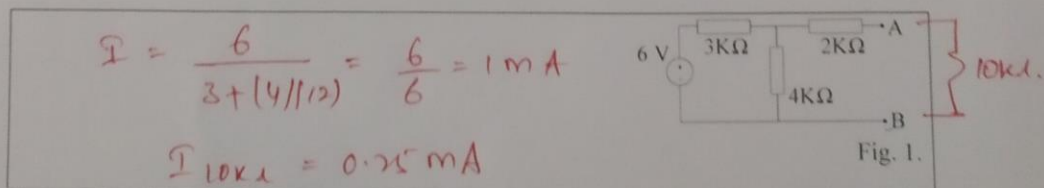 I = 6 / 3+(4||12) = 6 / 6 = 1 mA
I 10KΩ = 0.25 mA
6 V
3KΩ
2KΩ
·A
4KΩ
10KΩ.
·B
Fig. 1.